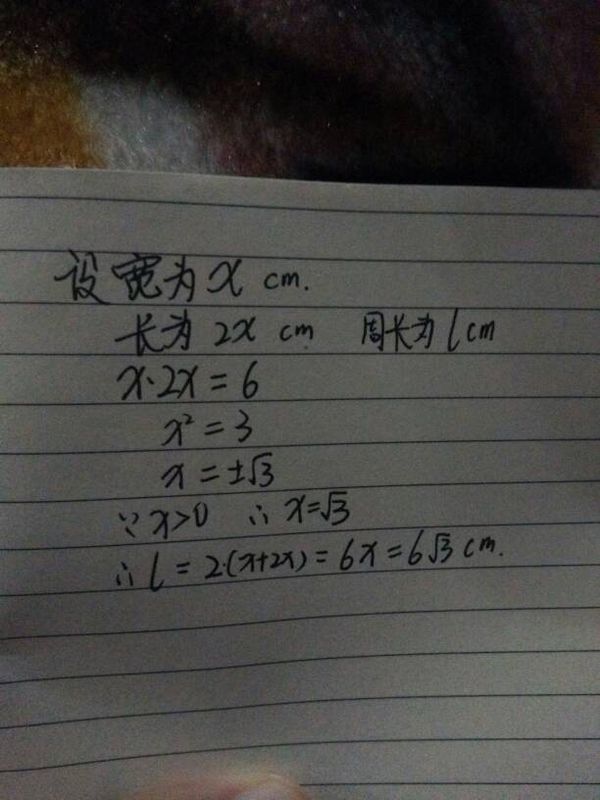 设宽为x cm.
长为 2x cm 周长为 l cm
x·2x = 6
x² = 3
x = ±√3
∵ x>0 ∴ x=√3
∴ l = 2·(x+2x) = 6x = 6√3 cm.